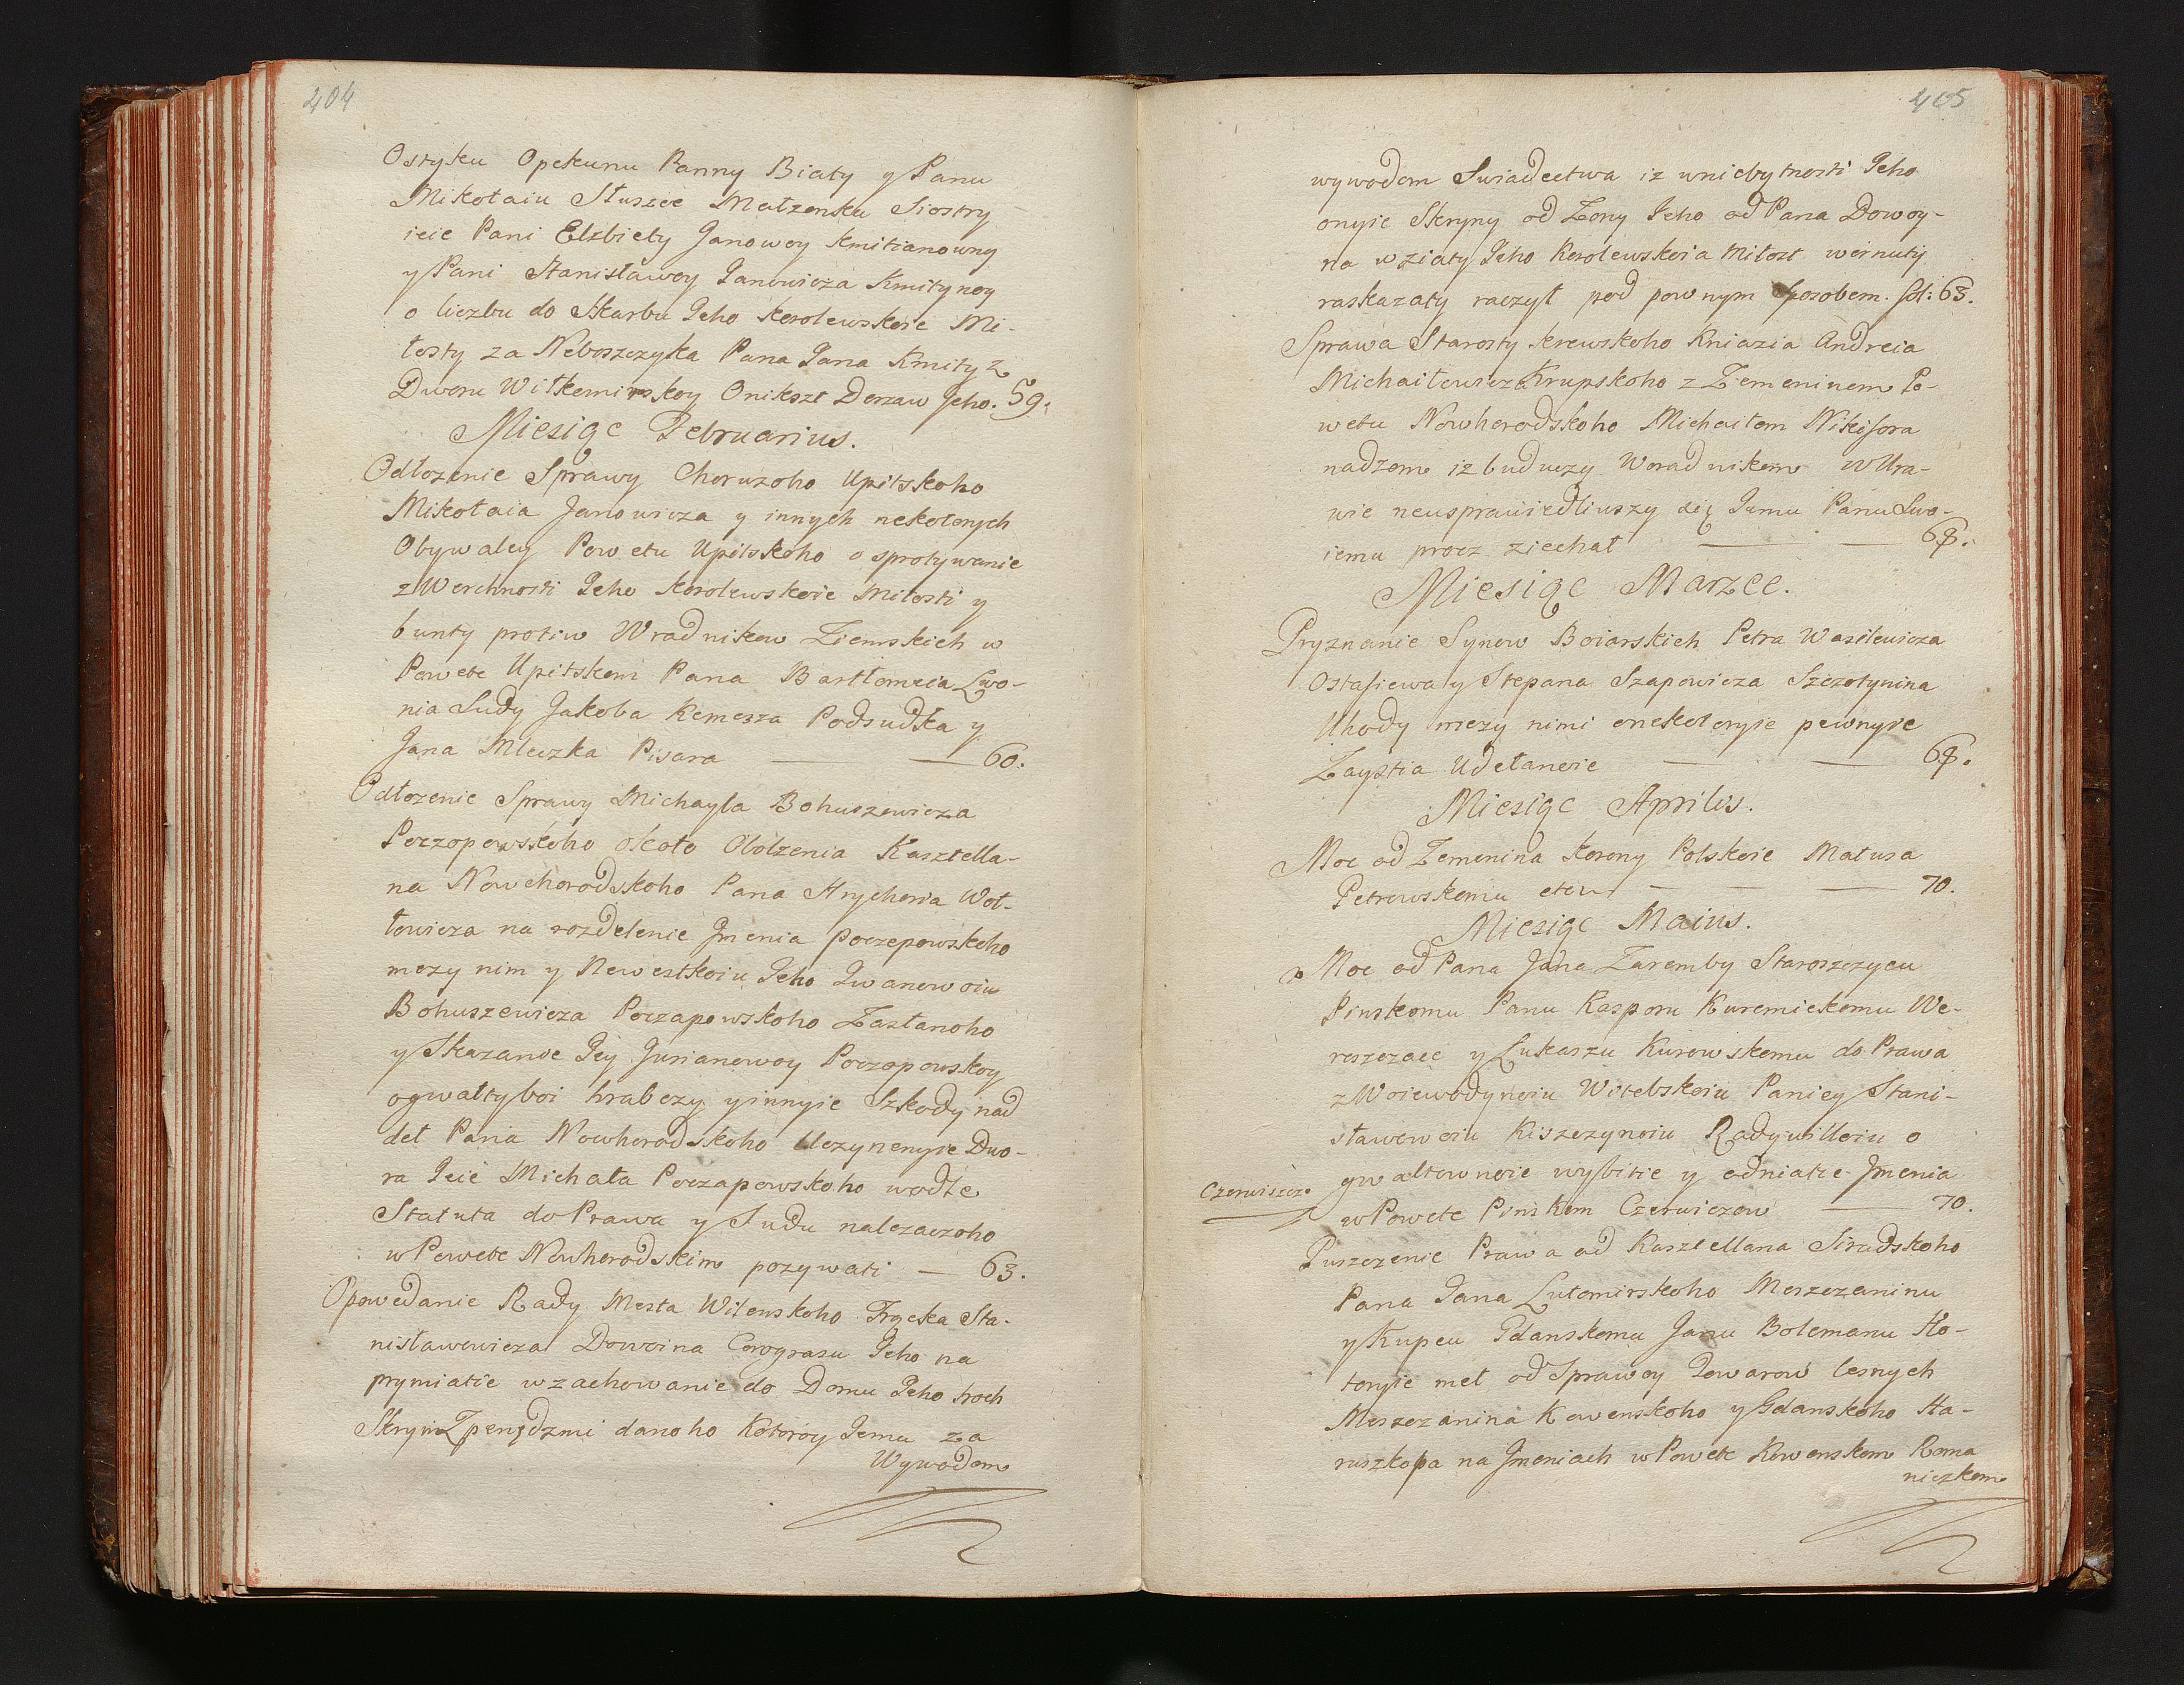 404
Ostyku Opekunu Panny Biaty y Panu
Mikołaiu Słuszce Małzonku Siostry
ieie Pani Elzbiety Janowoy Kmitianowny
y Pani Stanisławoy Janowicza Kmitynoy
o liczbu do Skarbu Jeho Korolewskoie Mi-
łosty za Neboszczyka Pana Jana Kmity z
Dworu Wiłkemirskoy Onikszt Derzaw Jeho. 59.
Miesiąc Februarius.
Odłozenie Sprawy Choruzoho Upitskoho
Mikołaia Janowicza y innych nekotorych
Obywatey Powetu Upitskoho o sprotywanie
z Werchnosti Jeho Korolewskoie Miłosti y
bunty protiw Wradnikow Ziemskich w
Powete Upitskom Pana Bartłomeia Lwo-
nia Sudy Jakoba Kemesza Podsudka y
Jana Mleczka Pisara — — 60.
Odłozenie Sprawy Michayla Bohuszewicza
Poczopowskoho około Obolzenia Kasztella-
na Nowohorodskoho Pana Hryhoria Woł-
łowicza na rozdelenie Jmenia Poczepowskoho
mezy nim y Newestkoiu Jeho Jwanowoiu
Bohuszewicza Poczapowskoho Zastanoho
y Skazanoe Jey Jurianowoy Poczopowskoy
o gwałty boi hrabezy y innyie Szkody nad
det Pana Nowhorodskoho Uczynenyie Dwo-
ra Jeie Michała Poczapowskoho wodle
Statuta do Prawa y Sudu nalezaczoho
w Powete Nowhorodskim pozywati — 63.
Opowedanie Rady Mesta Wilenskoho Frącka Sta-
nisławowicza Dowoina Corograsu Jeho na
prymiatie w zachowanie do Domu Jeho troch
Skryn Z penędzmi danoho Kotoroy Jemu za
Wywodom
405
wywodom Swiadectwa iz w niebytnosti Jeho
onyie Skryny od Zony Jeho od Pana Dowoy-
na wziaty Jeho Korolewskoia Miłost wernuty
raskazaty raczył pod pownym Sposobem. fol: 63.
Sprawa Starosty Krewskoho Kniazia Andreia
Michaiłowicza Krupskoho z Zemeninem Po-
wetu Nowhorodskoho Michaiłom Nikifora
nadzom iz buduczy Woradnikom w Ura-
wie neusprawiedliuszy się Jamu Panu Swo-
iemu procz ziechał — — 69.
Miesiąc Marzec.
Pryznanie Synow Boiarskich Petra Wasilewicza
Ostafiewa y Stepana Szapowicza Szczotynina
Uhody mezy nimi o nekotoryie pewnyie
Zaystia Udełanoie — — 69.
Miesiąc Aprilis.
Moc od Zemenina Korony Polskoie Matusa
Petrowskomu — — — 70.
Miesiąc Maius.
Moc od Pana Jana Zaremby Staroszczycu
Pinskomu Panu Kasporu Kuremickomu We-
reszczace y Lukaszu Kurowskomu do Prawa
z Woiewodynoiu Witebskoiu Paniey Stani-
sławowoiu Kiszczynoiu Radywiłłoiu o
gwałtownoie wybitie y odniatie Jmenia
Czerwiszcze
w Powete Pinskom Czerwiczow — 70.
Puszczenie Prawa od Kasztellana Siradskoho
Pana Jana Lutomirskoho Meszczaninu
y Kupcu Gdanskomu Janu Bolemanu Ko-
toryie met od Sprawoy Towarow lesnych
Meszczanina Kowenskoho y Gdanskoho Sta-
ruszkopa na Jmeniach w Powete Kowenskom Roma
niczkom